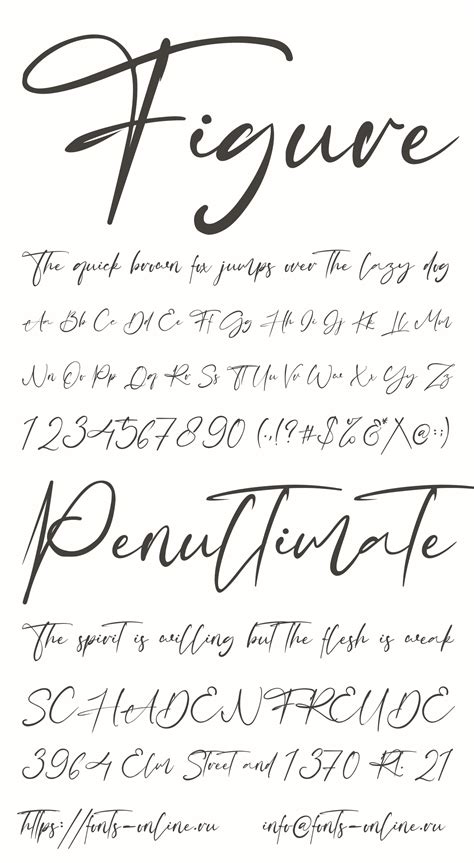 Figure
The quick brown fox jumps over the lazy dog
Aa Bb Cc Dd Ee Ff Gg Hh Ii Jj Kk Ll Mm
Nn Oo Pp Qq Rr Ss Tt Uu Vv Ww Xx Yy Zz
1234567890 (.,!?#$%&*/\@:;)
Penultimate
The spirit is willing but the flesh is weak
SCHADENFREUDE
3964 Elm Street and 1370 Rt. 21
https://fonts-online.ru info@fonts-online.ru